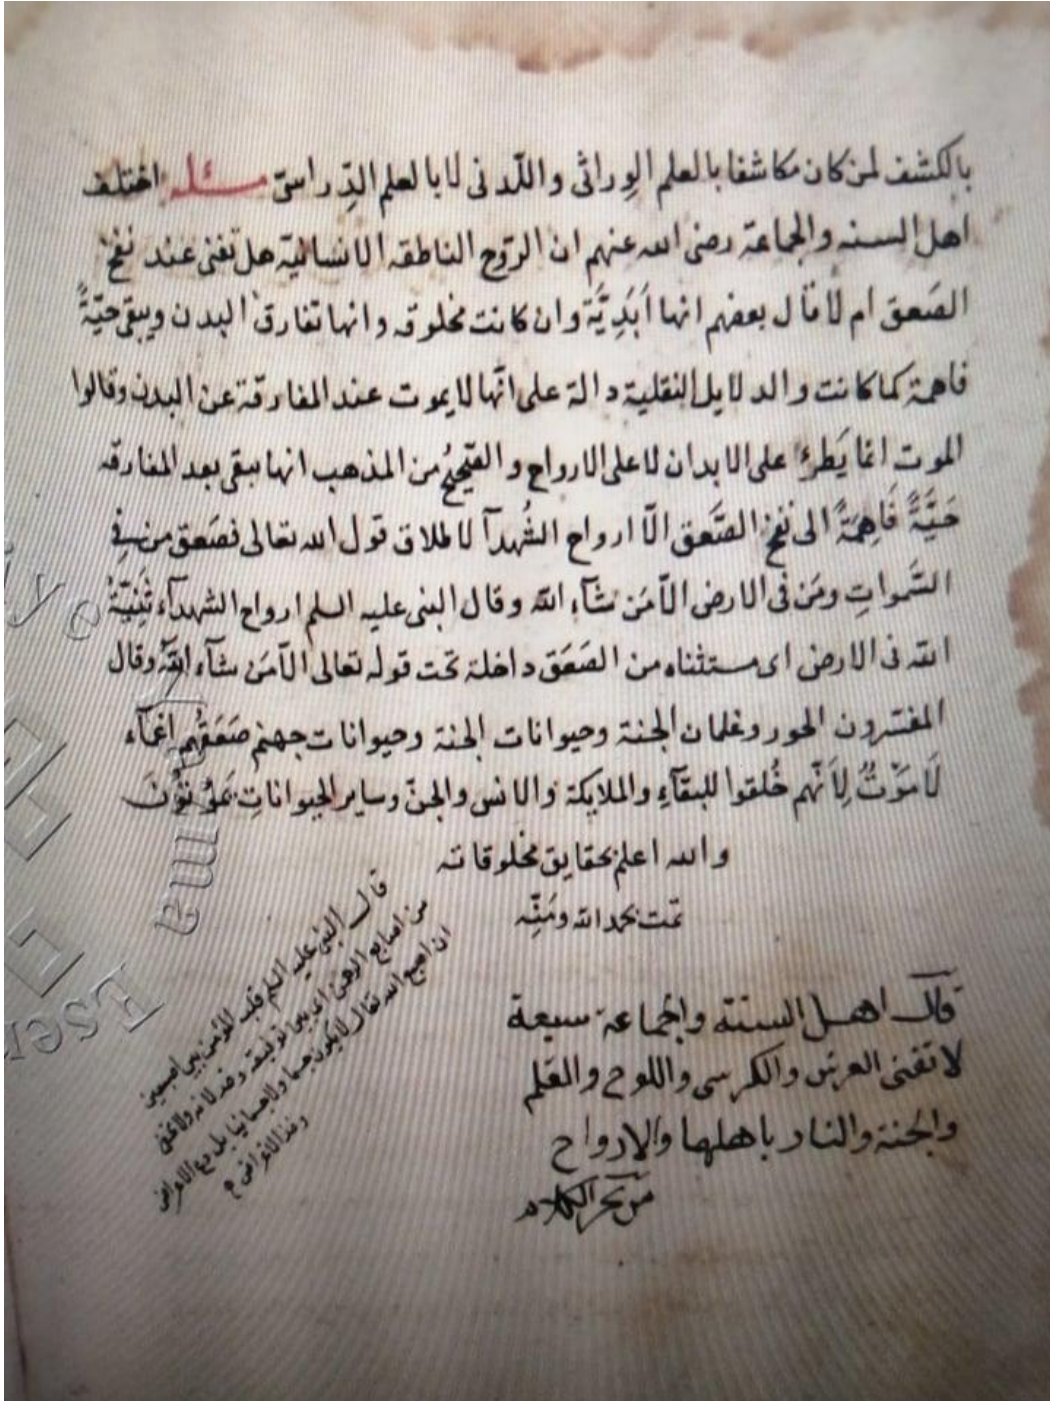 بالكشف لمن كان مكاشفا بالعلم الوِراثى واللّدنى لا بالعلم الدِّراسىّ مسئله اختلف
اهل السنه والجماعة رضى الله عنهم ان الرّوح الناطقه الانسانيّة هل تفنى عند نفخ
الصَعق ام لا قال بعضهم انها اَبَدِيَّة وان كانت مخلوقه وانها تفارق البدن ويبقى حيّةً
فاهمة كما كانت والدلايل النقلية دالة على انّها لا يموت عند المفارقة عن البدن وقالوا
الموت انما يَطرءُ على الابدان لا على الارواح والصّحيحُ من المذهب انها يبقى بعد المفارقه
حَيَّةً فَاهِمَةً الى نفخ الصَّعق الّا ارواح الشُهدآ لاطلاق قول الله تعالى فصَعق من فِى
السَّمواتِ ومَن فى الارض الّا مَن شآء الله وقال النبى عليه السلم ارواح الشهدآء ثَنِيَّةُ
الله فى الارض اى مستثناه من الصَعَق داخلة تحت قوله تعالى الّا مَن شآء اللّه وقال
المفسّرون الحور وغلمان الجنة وحيوانات الجنة وحيوانات جهنم صَعَقُهم اغمآء
لَا مَوْتٌ لِاَنّهم خُلقوا للبقآءِ والملايكة والانس والجنّ وساير الحيواناتِ يَموُتوُنَ
والله اعلم بحقايق مخلوقاته
تمت بحمد الله ومَنِّه
قال اهل السنة والجماعة سبعة
لا تفنى العرش والكرسى واللوح والقلم
والجنة والنار باهلها والارواح
من بحر الكلام
قال النبى عليه السلم قلب المؤمن بين اصبعين
من اصابع الرحمن اى بين توفيقه وخذلانه ولا
ان اصبع الله تعالى لا يكون جسما ولا جسمانيا بل مع الاعراض